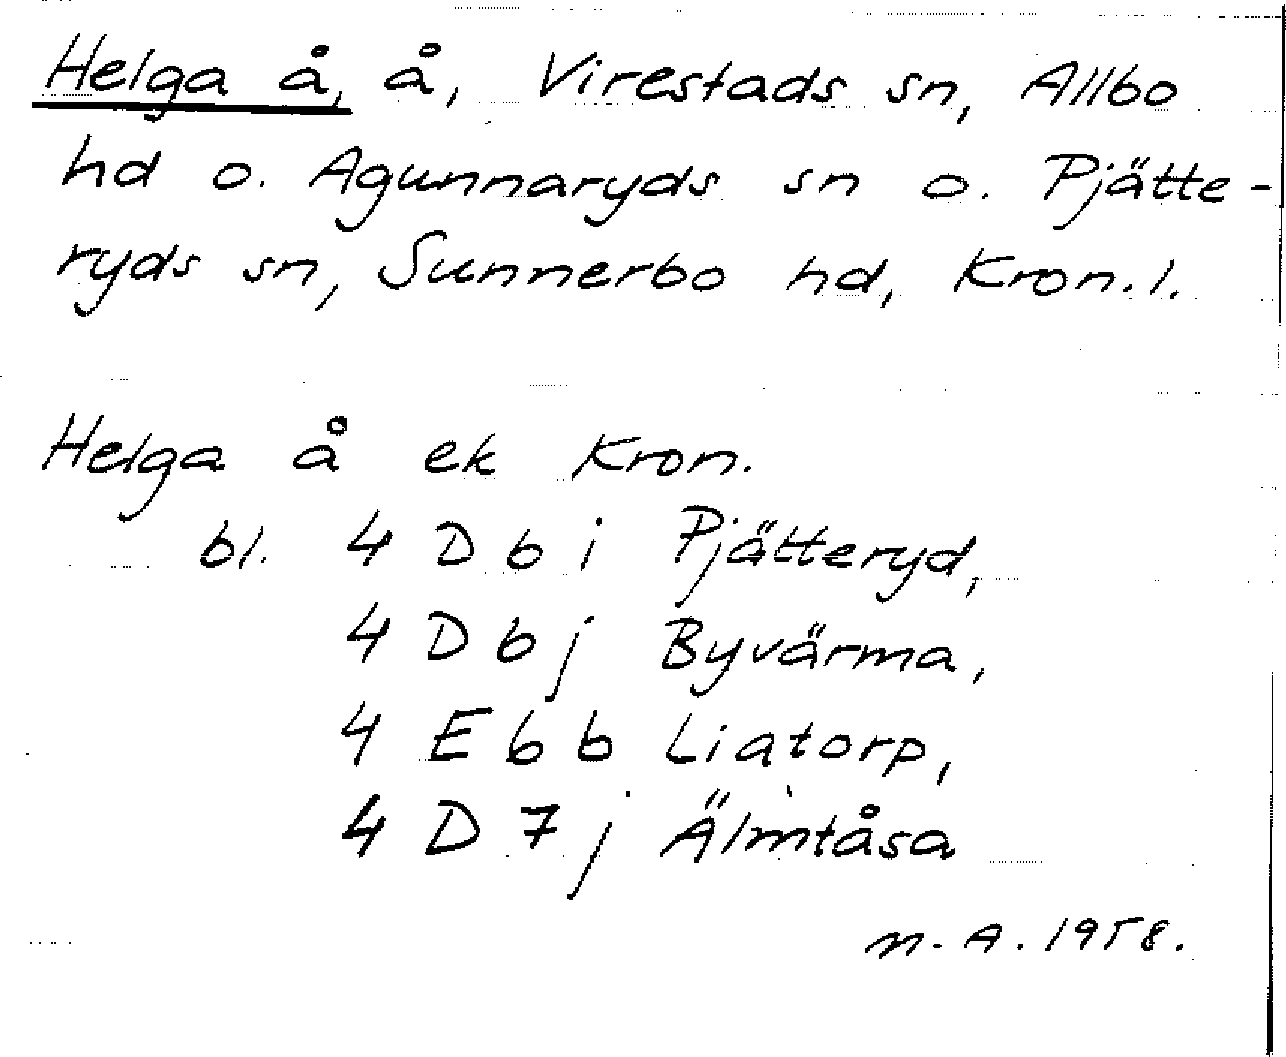 Helga å, å, Virestads sn, Allbo
hd o. Agunnaryds sn o. Pjätte-
ryds sn, Sunnerbo hd, Kron.l.
Helga å ek Kron.
bl. 4 D 6 i Pjätteryd,
4 D 6 j Byvärma,
4 E 6 b Liatorp,
4 D 7 j Älmtåsa
m. A. 1958.